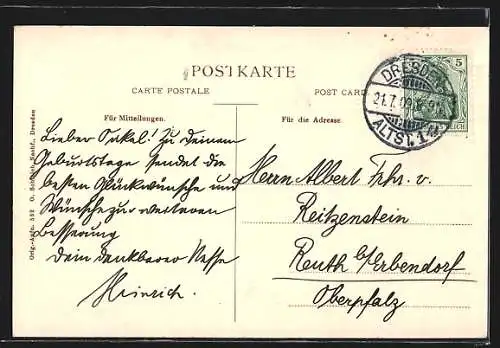 POSTKARTE
CARTE POSTALE
POST CARD
Für Mitteilungen.
Für die Adresse.
Lieber Onkel! Zu deinem
Geburtstage sendet die
besten Glückwünsche und
Wünsche zur weiteren
Besserung
Dein dankbarer Neffe
Heinrich.
Herrn Albert Frhr. v.
Reitzenstein
Reuth b/Erbendorf
Oberpfalz
DRESDEN
21.7.09
ALTST. 1
5
REICH
Orig.-Aufn. 552 O. Nachf., Dresden